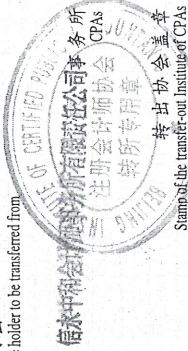 holder to be transferred from
信永中和会计师事务所有限责任公司事务所
CPAs
OF CERTIFIED PUBLIC
BEIJING
注册会计师协会
转所专用章
转出协会盖章
Stamp of the transfer-out Institute of CPAs